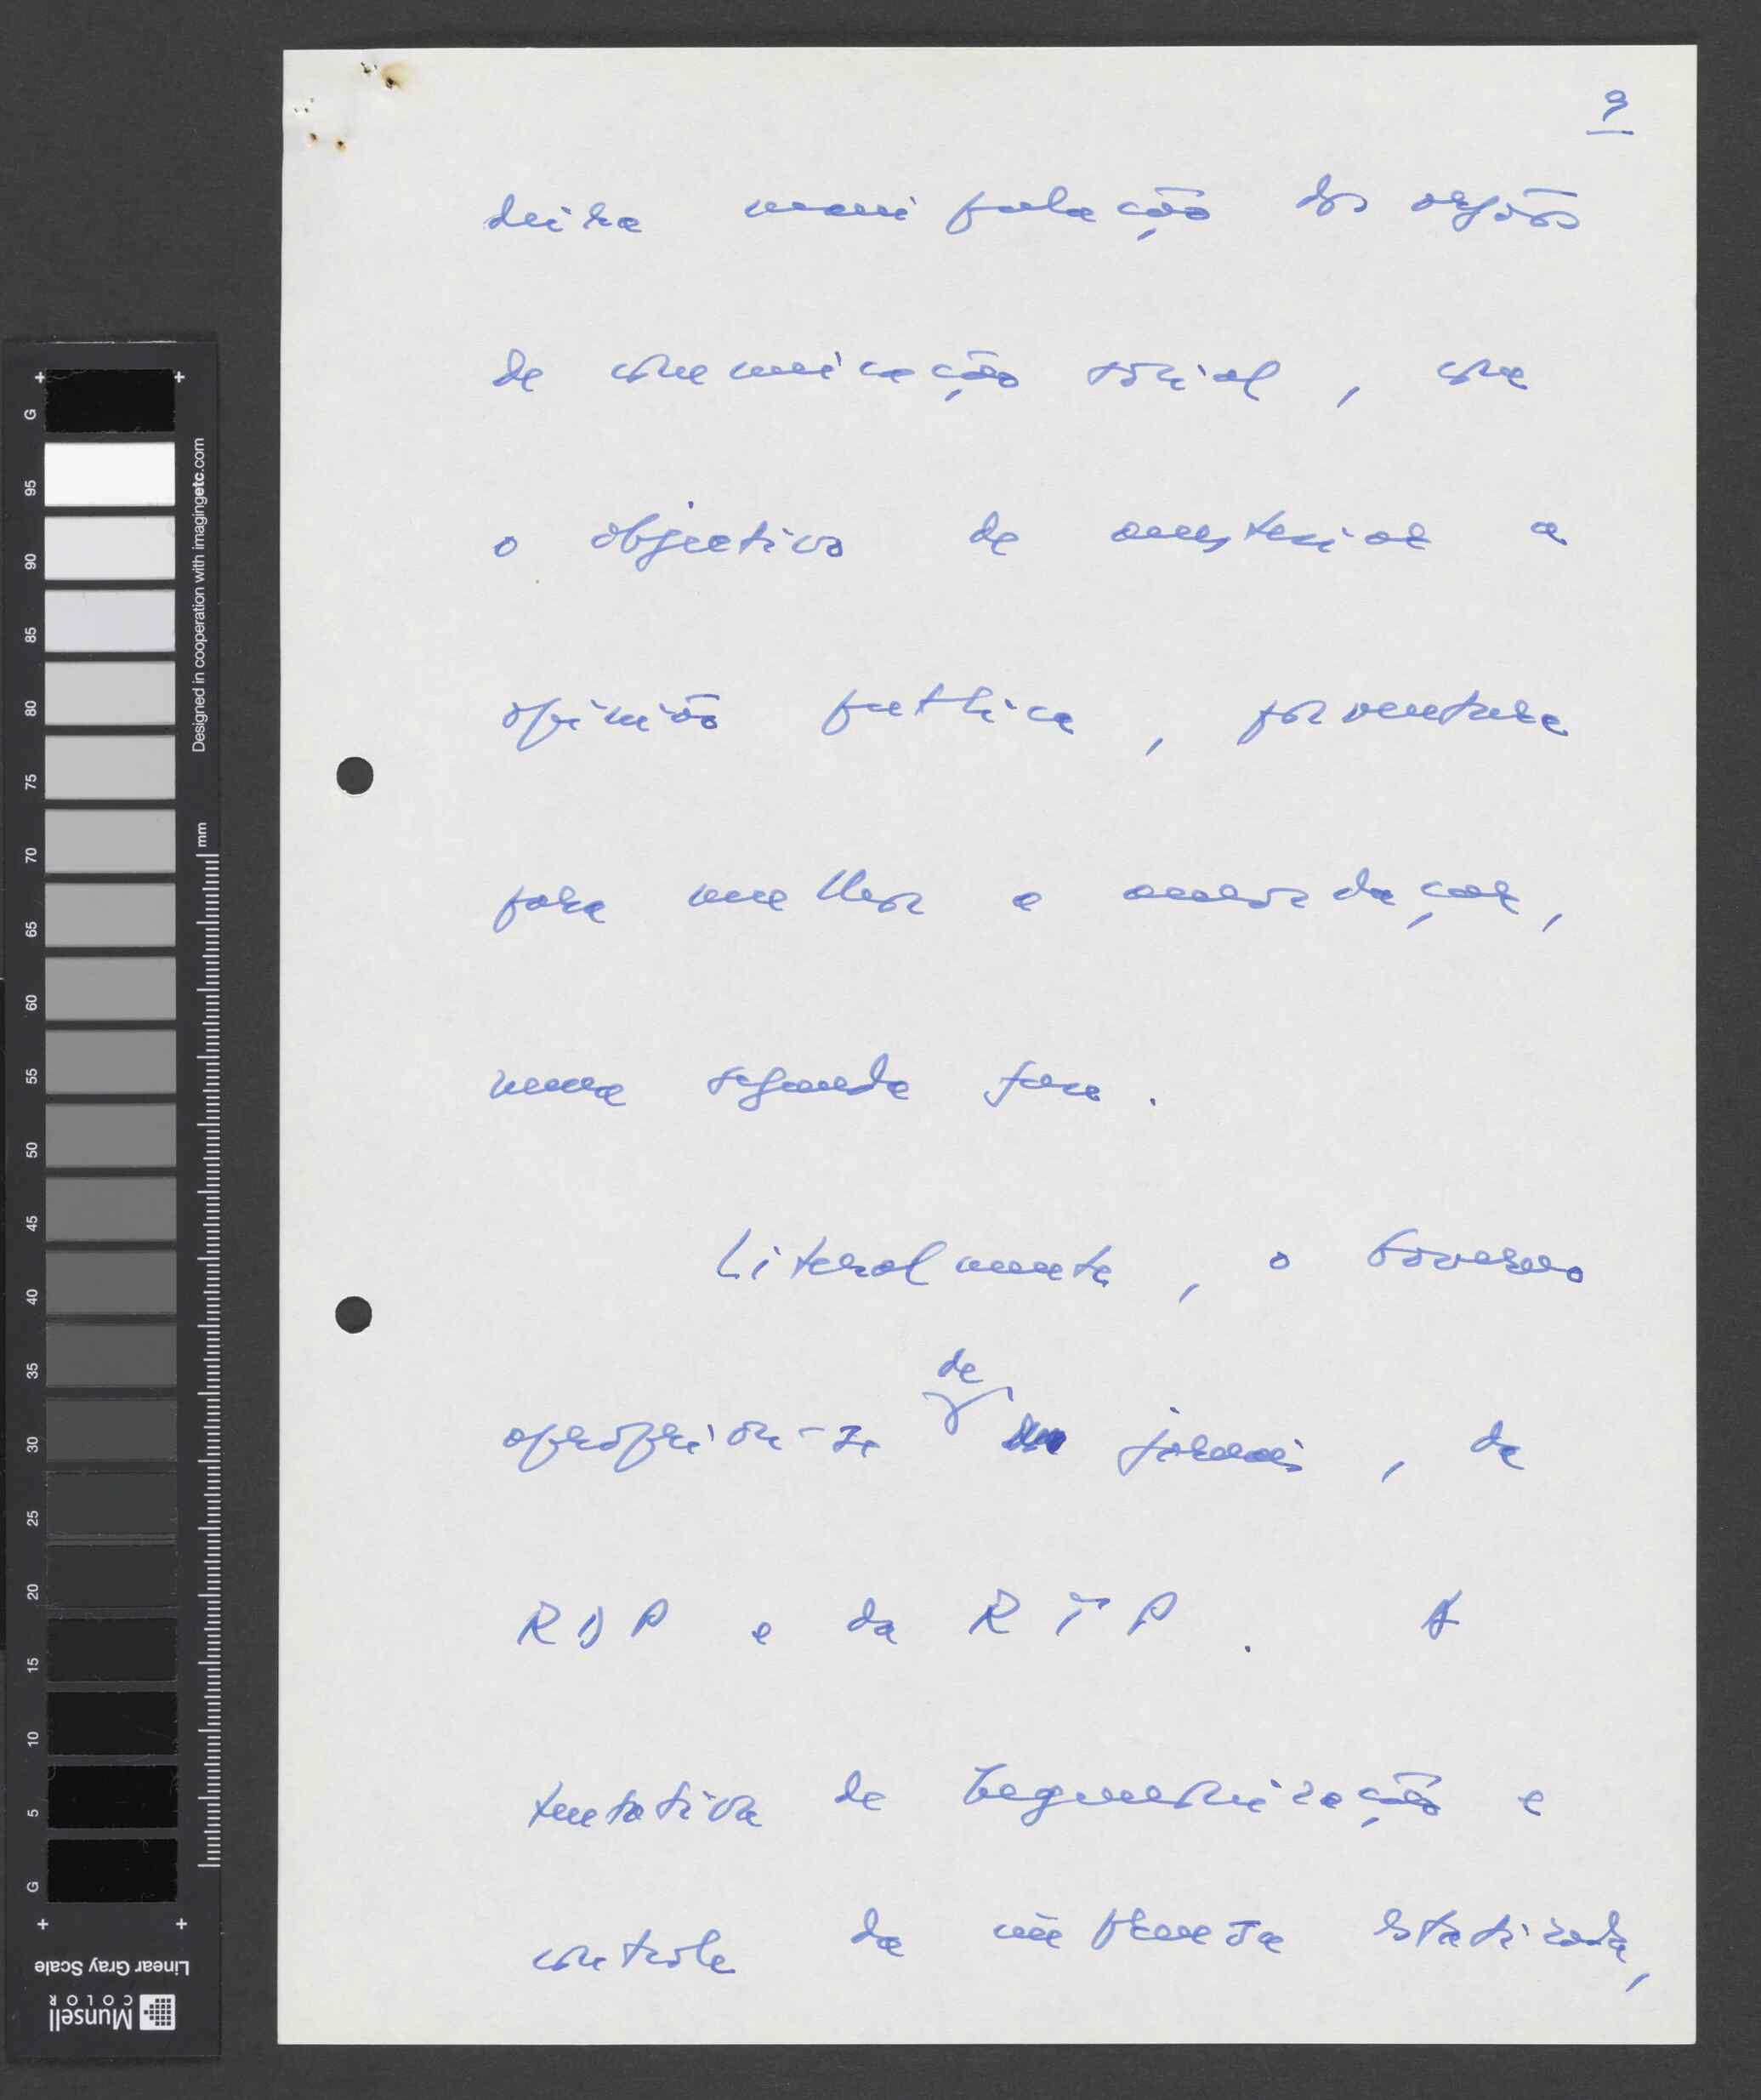 9
deira manipulação dos orgãos
de comunicação social, com
o objectivo de anestesiar a
opinião publica, porventura
para melhor a amordaçar,
numa segunda fase.
Literalmente, o Governo
de
apropriou-se jornais, da
RDP e da RTP. A
tentativa de hegemonização e
controle da imprensa estatizada,
G 95 90 85 80 75 70 65 60 55 50 45 40 35 30 25 20 15 10 5 G
Designed in cooperation with imagingetc.com
mm
Linear Gray Scale
Munsell
COLOR